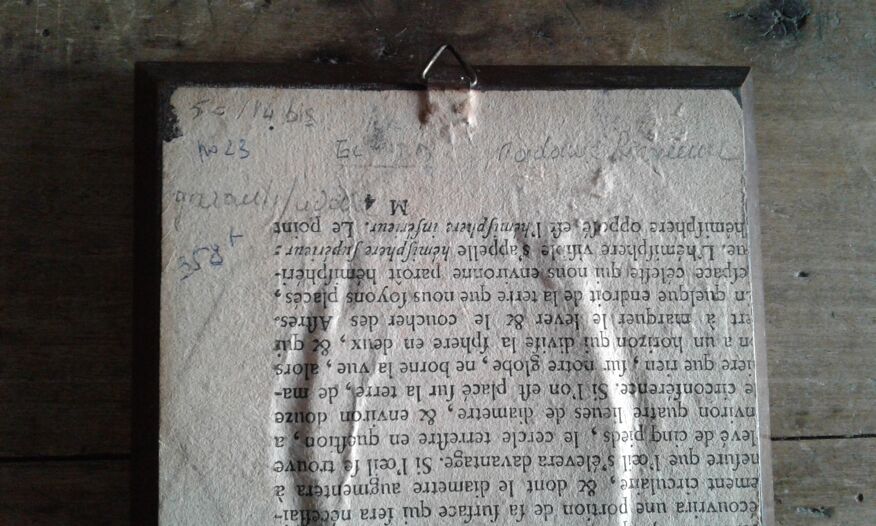 14 bis
no 23
Madame
358 +
écouvrira une portion de ſa ſurface qui ſera néceſſai-
ement circulaire, & dont le diametre augmentera à
meſure que l'œil s'élevera davantage. Si l'œil ſe trouve
levé de cinq pieds, le cercle terreſtre en queſtion, a
nviron quatre lieues de diametre, & environ douze
e circonférence. Si l'on eſt placé ſur la terre, de ma-
iere que rien, ſur notre globe, ne borne la vue, alors
n a un horizon qui diviſe la ſphere en deux, & qui
ert à marquer le lever & le coucher des Aſtres.
n quelque endroit de la terre que nous ſoyons placés,
eſpace céleſte qui nous environne paroît hémiſphéri-
ue. L'hémiſphere viſible s'appelle hémiſphere ſupérieur :
hémiſphere oppoſé eſt l'hémiſphere inférieur. Le point
M 4